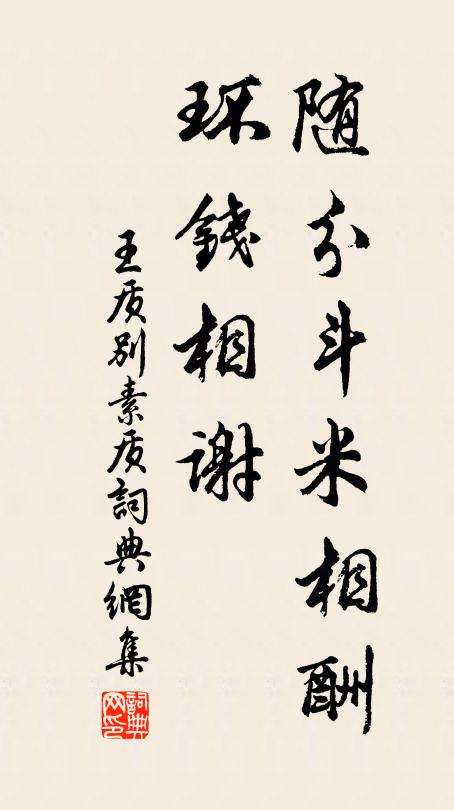 随分斗米相酬
环錢相谢
王质别素质詞典網集
詞典网印